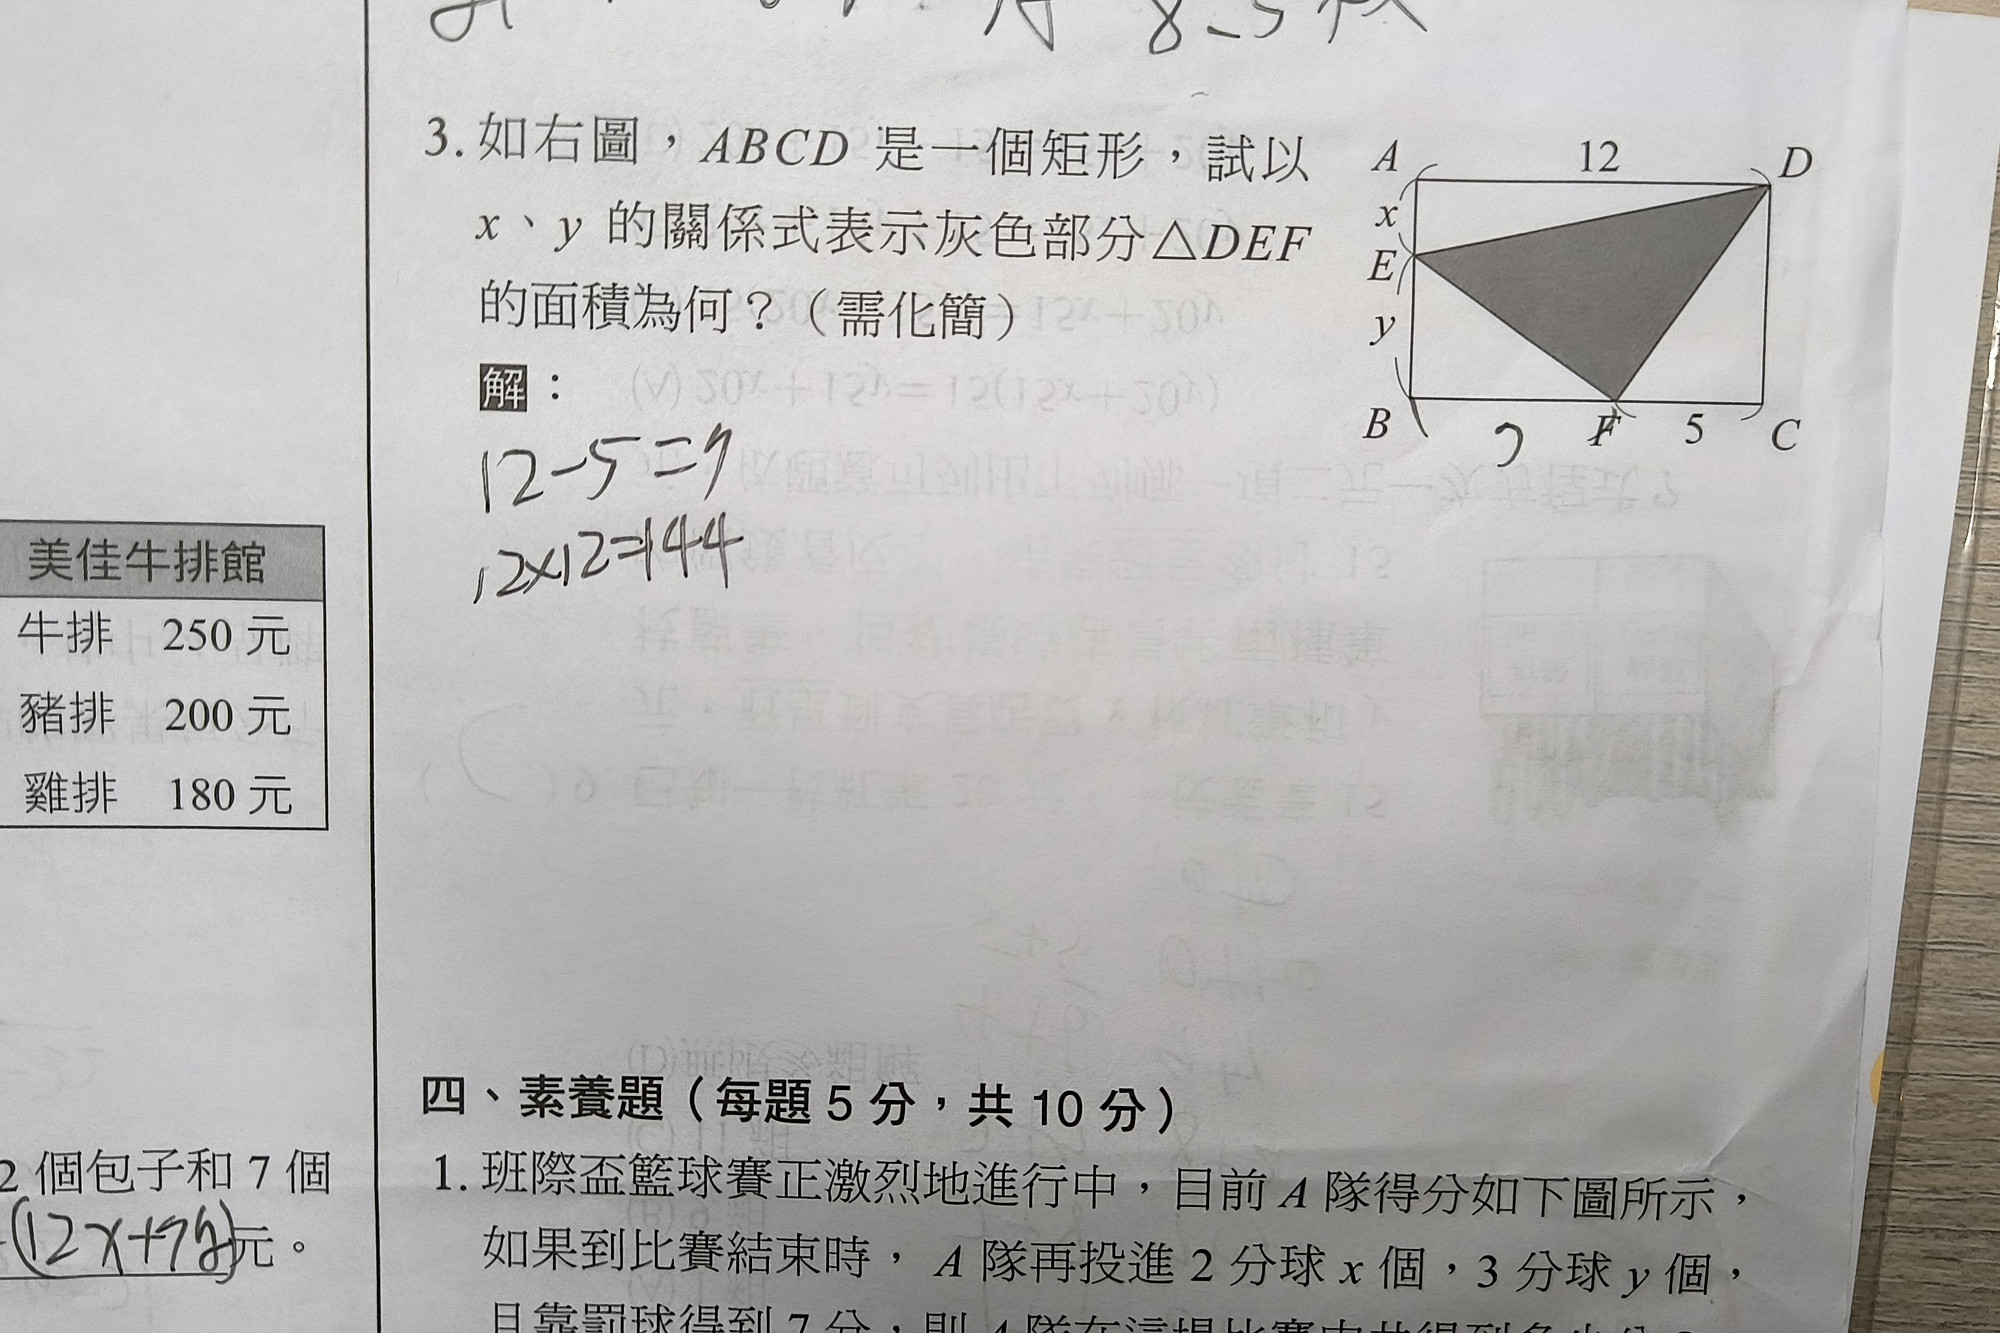 3. 如右圖，ABCD 是一個矩形，試以
x、y 的關係式表示灰色部分△DEF
的面積為何？（需化簡）
解：
12-5=7
12×12=144
A 12 D
x
E
y
B F 5 C
美佳牛排館
牛排 250 元
豬排 200 元
雞排 180 元
2 個包子和 7 個
(12x+7y)元。
四、素養題（每題 5 分，共 10 分）
1. 班際盃籃球賽正激烈地進行中，目前 A 隊得分如下圖所示，
如果到比賽結束時， A 隊再投進 2 分球 x 個，3 分球 y 個，
且靠罰球得到 7 分，則 A 隊在這場比賽中共得到多少分？